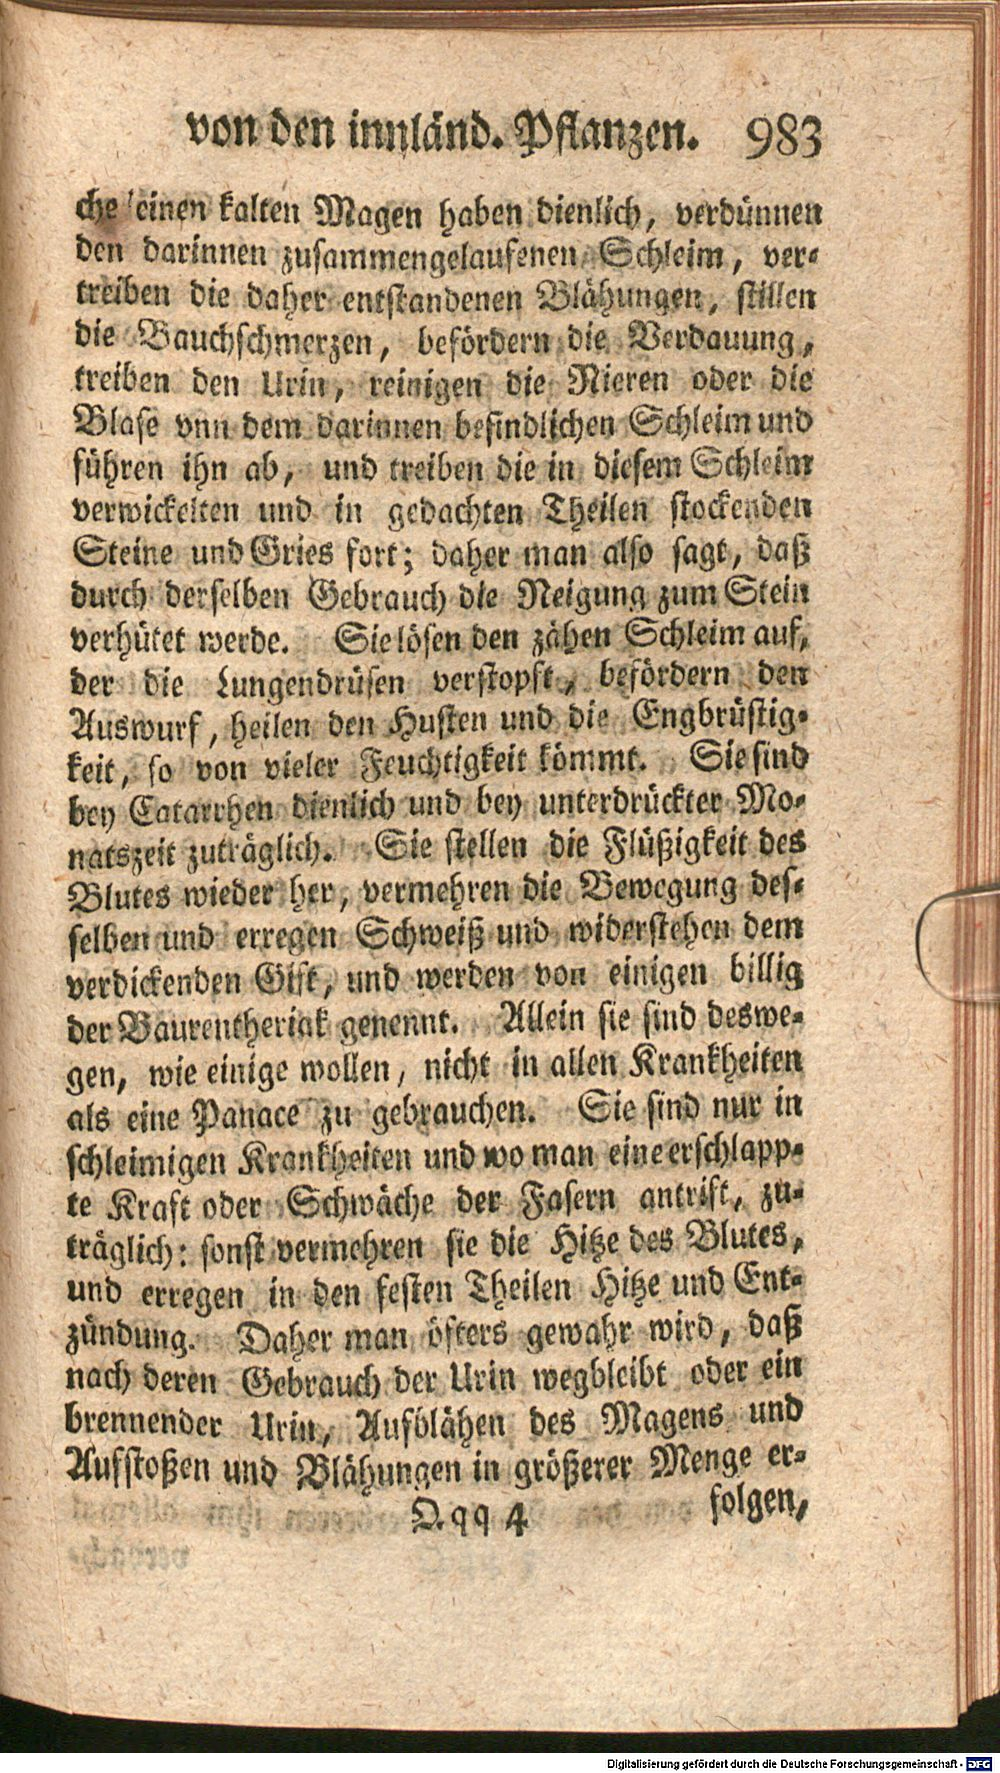 von den innländ. Pflanzen. 983
che einen kalten Magen haben dienlich, verdünnen
den darinnen zusammengelaufenen Schleim, ver-
treiben die daher entstandenen Blähungen, stillen
die Bauchschmerzen, befördern die Verdauung,
treiben den Urin, reinigen die Nieren oder die
Blase vnn dem darinnen befindlichen Schleim und
führen ihn ab, und treiben die in diesem Schleim
verwickelten und in gedachten Theilen stockenden
Steine und Gries fort; daher man also sagt, daß
durch derselben Gebrauch die Neigung zum Stein
verhütet werde. Sie lösen den zähen Schleim auf,
der die Lungendrüsen verstopft, befördern den
Auswurf, heilen den Husten und die Engbrüstig-
keit, so von vieler Feuchtigkeit kömmt. Sie sind
bey Catarrhen dienlich und bey unterdrückter Mo-
natszeit zuträglich. Sie stellen die Flüßigkeit des
Blutes wieder her, vermehren die Bewegung des-
selben und erregen Schweiß und widerstehen dem
verdickenden Gift, und werden von einigen billig
der Baurentheriak genennt. Allein sie sind deswe-
gen, wie einige wollen, nicht in allen Krankheiten
als eine Panace zu gebrauchen. Sie sind nur in
schleimigen Krankheiten und wo man eine erschlapp-
te Kraft oder Schwäche der Fasern antrift, zu-
träglich: sonst vermehren sie die Hitze des Blutes,
und erregen in den festen Theilen Hitze und Ent-
zündung. Daher man öfters gewahr wird, daß
nach deren Gebrauch der Urin wegbleibt oder ein
brennender Urin, Aufblähen des Magens und
Aufstoßen und Blähungen in größerer Menge er-
Q.qq 4 folgen,
Digitalisierung gefördert durch die Deutsche Forschungsgemeinschaft - DFG